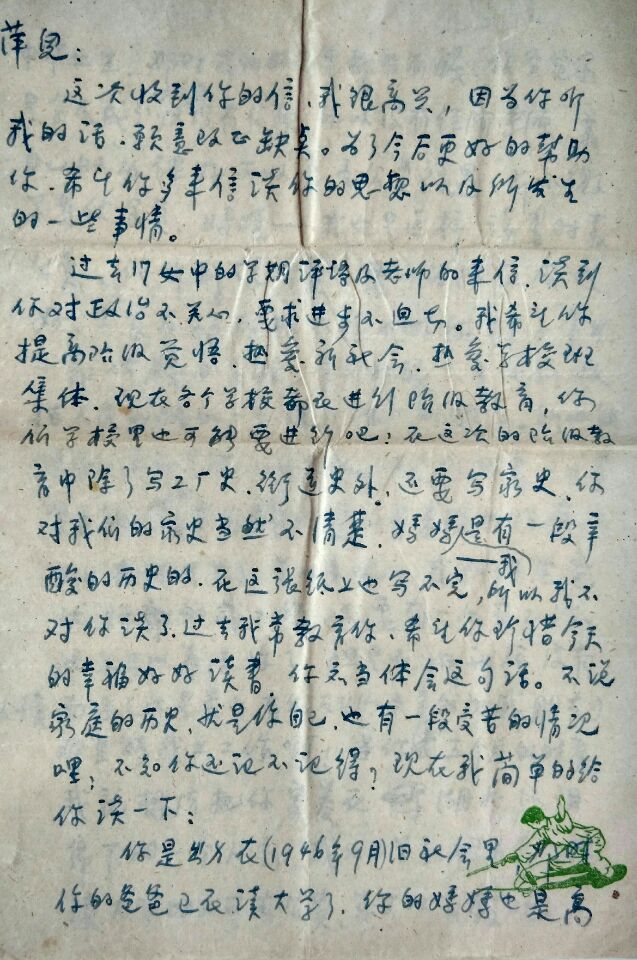 萍儿:
这次收到你的信,我很高兴,因为你听
我的话,愿意改正缺点。为了今后更好的帮助
你,希望你多来信谈你的思想以及所发生
的一些事情。
过去17女中的学期评语及老师的来信,谈到
你对政治不关心,要求进步不迫切。我希望你
提高阶级觉悟,热爱新社会,热爱学校班
集体,现在各个学校都在进行阶级教育,你
们学校里也可能要进行吧;在这次的阶级教
育中除了写工厂史,街道史外,还要写家史,你
对我们的家史当然不清楚,妈妈是有一段辛
我
酸的历史的,在这张纸上也写不完,所以我不
对你谈了,过去我常教育你,希望你珍惜今天
的幸福好好读书,你应当体会这句话。不说
家庭的历史,就是你自己,也有一段受苦的情况
哩,不知你还记不记得?现在我简单的给
你谈一下:
你是出生在(1946年9月)旧社会里,那时
你的爸爸已在读大学了,你的妈妈也是高